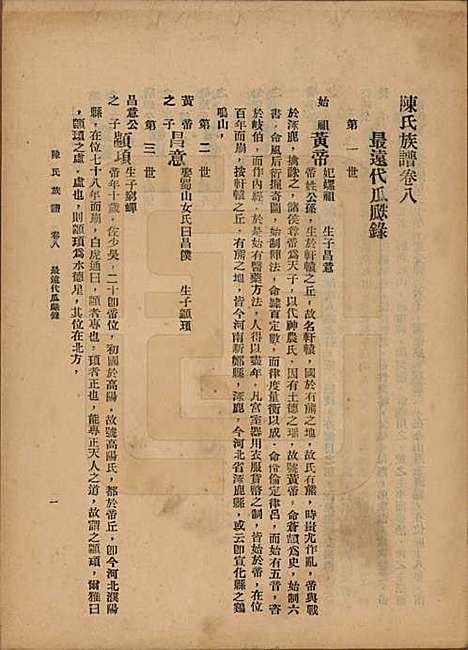 陳氏族譜卷八
最遠代瓜瓞錄
第一世
始祖黃帝 妃嫘祖 生子昌意
帝姓公孫，生於軒轅之丘，故名軒轅，國於有熊之地，故氏有熊，時蚩尤作亂，帝與戰
於涿鹿，擒殺之，諸侯尊帝爲天子，以代神農氏，因有土德之瑞，故號黃帝，命蒼頡爲史，始制六
書，命風后衍握奇圖，始制陣法，命隸首定數，而律度量衡以成，命伶倫定律呂，而始有五音，咨
於岐伯，而作內經，於是始有醫藥方法，人得以盡年，凡宮室器用衣服貨幣之制，皆始於帝，在位
百年而崩，按軒轅之丘，有熊之地，皆今河南新鄭縣，涿鹿，今河北省涿鹿縣，或云卽宣化縣之鷄
鳴山，
第二世
黃帝之子昌意 娶蜀山女氏曰昌僕 生子顓頊
第三世
昌意公之子顓頊 生子窮蟬
帝年十歲，佐少昊，二十卽帝位，初國於高陽，故號高陽氏，都於帝丘，卽今河北濮陽
縣，在位七十八年而崩，白虎通曰，顓者專也，頊者正也，能專正天人之道，故謂之顓頊，爾雅曰
，顓頊之虛，虛也，則顓頊爲水德是，其位在北方，
陳氏族譜 卷八 最遠代瓜瓞錄 一